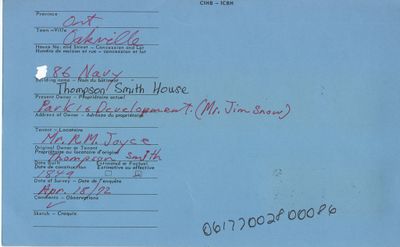 CIHB – ICBH
Province
Ont
Town – Ville
Oakville
House No. and Street – Concession and Lot
Numéro de maison et rue – concession et lot
86 Navy
Building name – Nom du bâtiment
Thompson Smith House
Present Owner – Propriétaire actuel
Park is Development. (Mr. Jim Snow)
Address of Owner – Adresse du propriétaire
Tenant – Locataire
Mr. R.M. Joyce
Original Owner or Tenant
Propriétaire ou locataire d'origine
Thompson Smith
Date Built Estimated or Factual
Date de construction Estimative ou effective
1849
Date of Survey – Date de l'enquête
Apr. 15/72
Comments – Observations
Sketch – Croquis
06177002800086